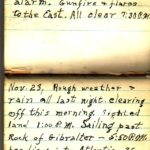 alarm. Gunfire & flares
to the East. All clear 7:30 P.M.
Nov. 23, Rough weather &
rain all last night clearing
off this morning. Sighted
land 1:00 P.M. Sailing past
Rock of Gibralter - 6:50 P.M.